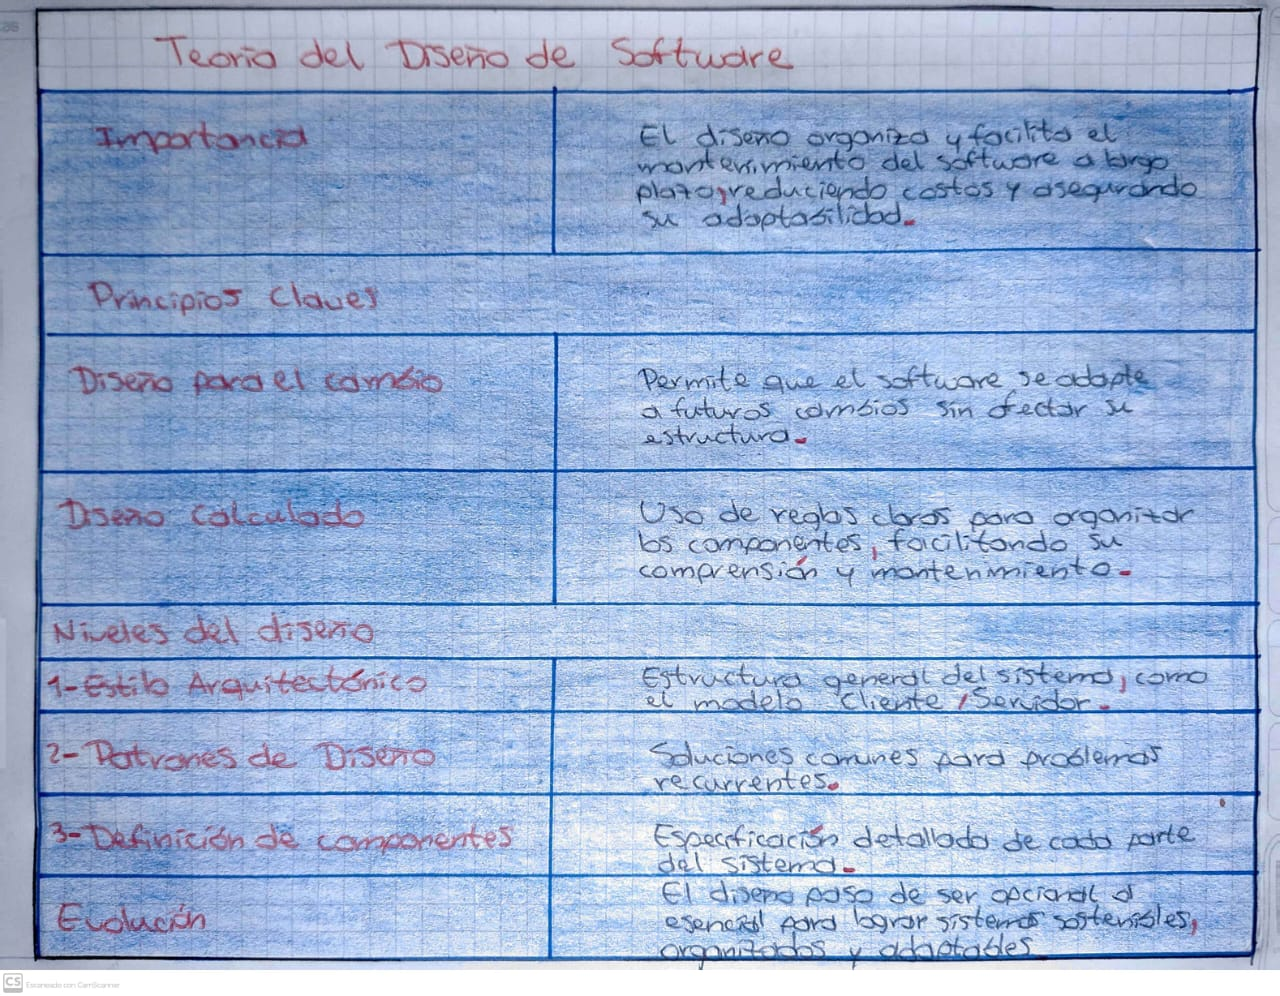 Teoria del Diseño de Software
Importancia
El diseño organiza y facilita el
mantenimiento del software a largo
plazo, reduciendo costos y asegurando
su adaptabilidad.
Principios Claves
Diseño para el cambio
Permite que el software se adapte
a futuros cambios sin afectar su
estructura.
Diseño Calculado
Uso de reglas claras para organizar
los componentes, facilitando su
comprensión y mantenimiento.
Niveles del diseño
1-Estilo Arquitectónico
Estructura general del sistema, como
el modelo Cliente / Servidor.
2-Patrones de Diseño
Soluciones comunes para problemas
recurrentes.
3-Definición de componentes
Especificación detallada de cada parte
del sistema.
Evolución
El diseño paso de ser opcional a
esencial para lograr sistemas sostenibles,
organizados y adaptables
CS Escaneado con CamScanner